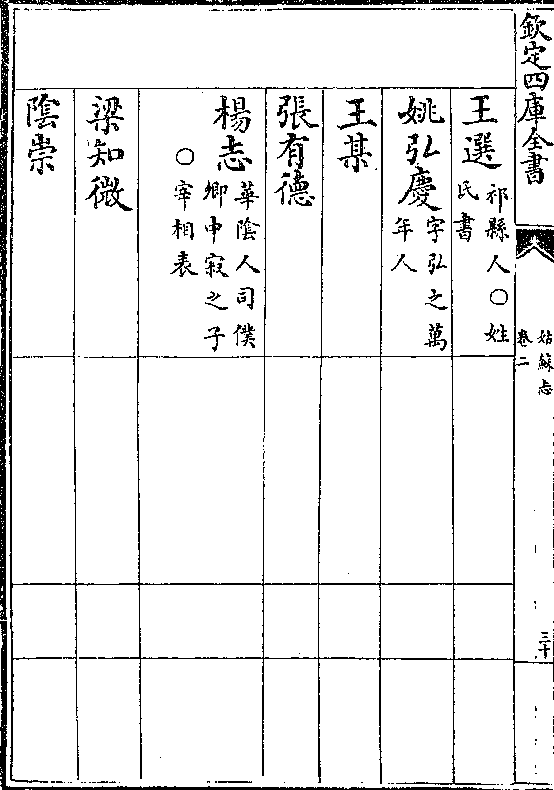 欽定四庫全書
姑蘇志
卷二
三十
王選
祁縣人○姓
氏書
姚弘慶
字弘之萬
年人
王某
張有德
楊志
華陰人司僕
卿申寂之子
○宰相表
梁知微
陰崇